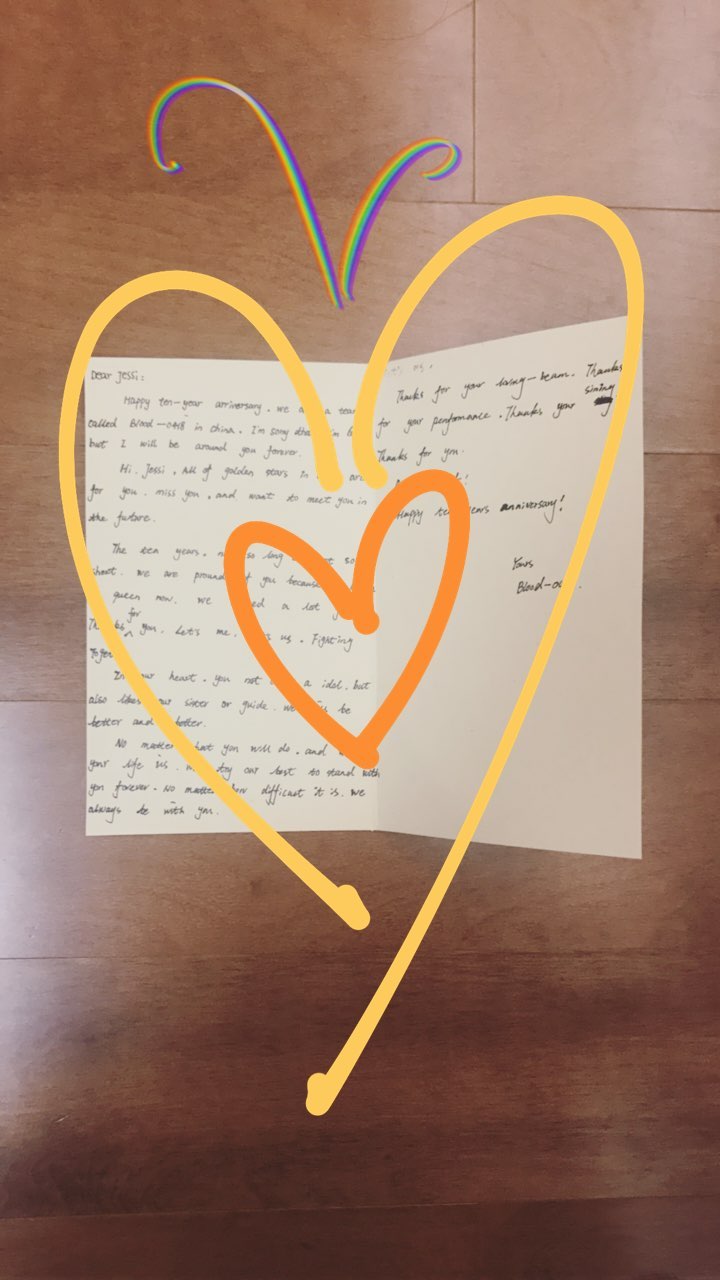 Dear Jessi:
Happy ten-year arriversary. we a team
called Blood-0418 in china. I'm sorry
but I will be around you forever.
Hi. Jessi. All of golden stars In are
for you. miss you, and want to meet you in
the future.
The ten years. so long so
short. we are pround of you because
queen now. we a lot
for
you. Let's me. us. Fighting
In our heart. you not a idol. but
also likes our sister or guide. we be
better and better.
No matter what you will do. and
your life is. try our best to stand with
you forever. No matter how difficult it is. we
always be with you.
Thanks for your loving-beam. Thanks
for your performance. Thanks your sining
Thanks for you.
Happy ten years anniversary!
Yours